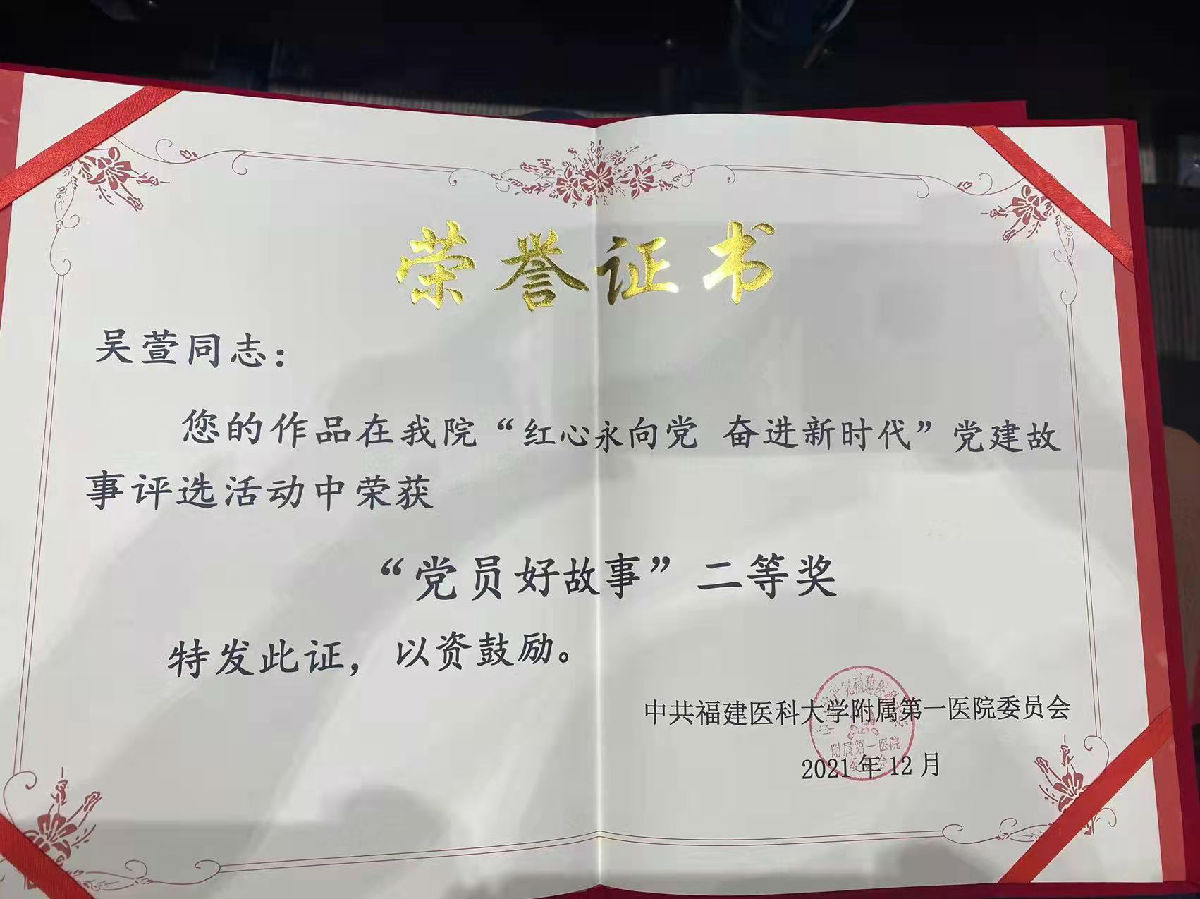 荣誉证书
吴萱同志：
您的作品在我院“红心永向党 奋进新时代”党建故
事评选活动中荣获
“党员好故事”二等奖
特发此证，以资鼓励。
中共福建医科大学附属第一医院委员会
附属第一医院
2021年12月